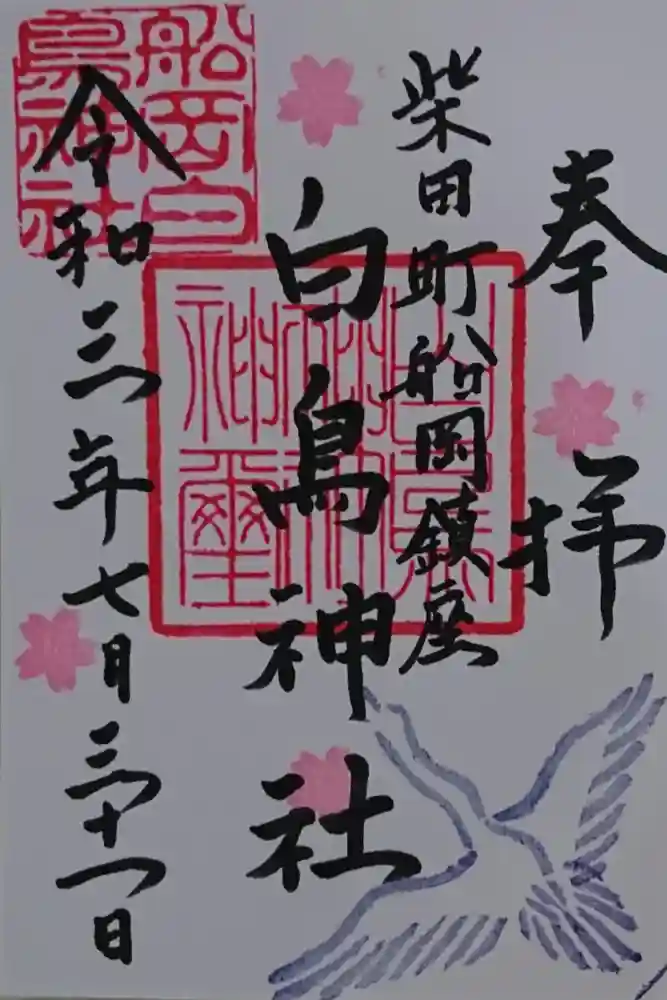 奉拝
柴田町船岡鎮座
白鳥神社
令和三年七月三十一日
船岡白
鳥神社